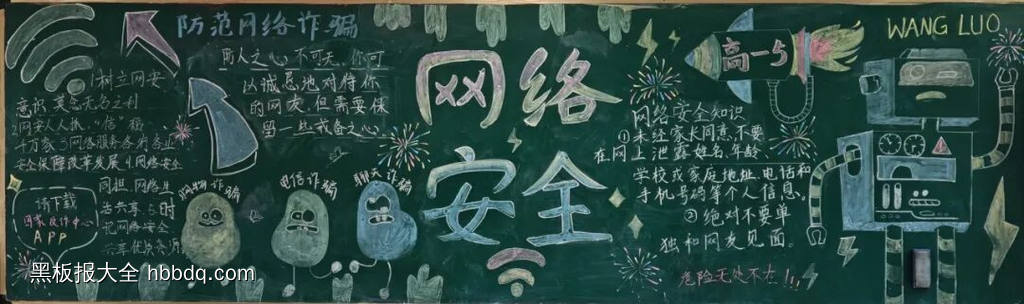 防范网络诈骗
WANG LUO
高一5
防人之心不可无,你可
以诚恳地对待你
的网友,但需要保
留一些戒备之心
网络
安全
1树立网安
意识 莫念无名之利
2网安人人抓,"信"福
千万家 3网络服务各行各业
安全保障改革发展 4网络安全
同担,网络生
活共享 5时
购物诈骗
电信诈骗
聊天诈骗
请下载
国家反诈中心
APP
网络安全知识
①未经家长同意,不要
在网上泄露姓名,年龄、
学校或家庭地址,电话和
手机号码等个人信息。
②绝对不要单
独和网友见面。
危险无处不在!!!
黑板报大全 hbbdq.com